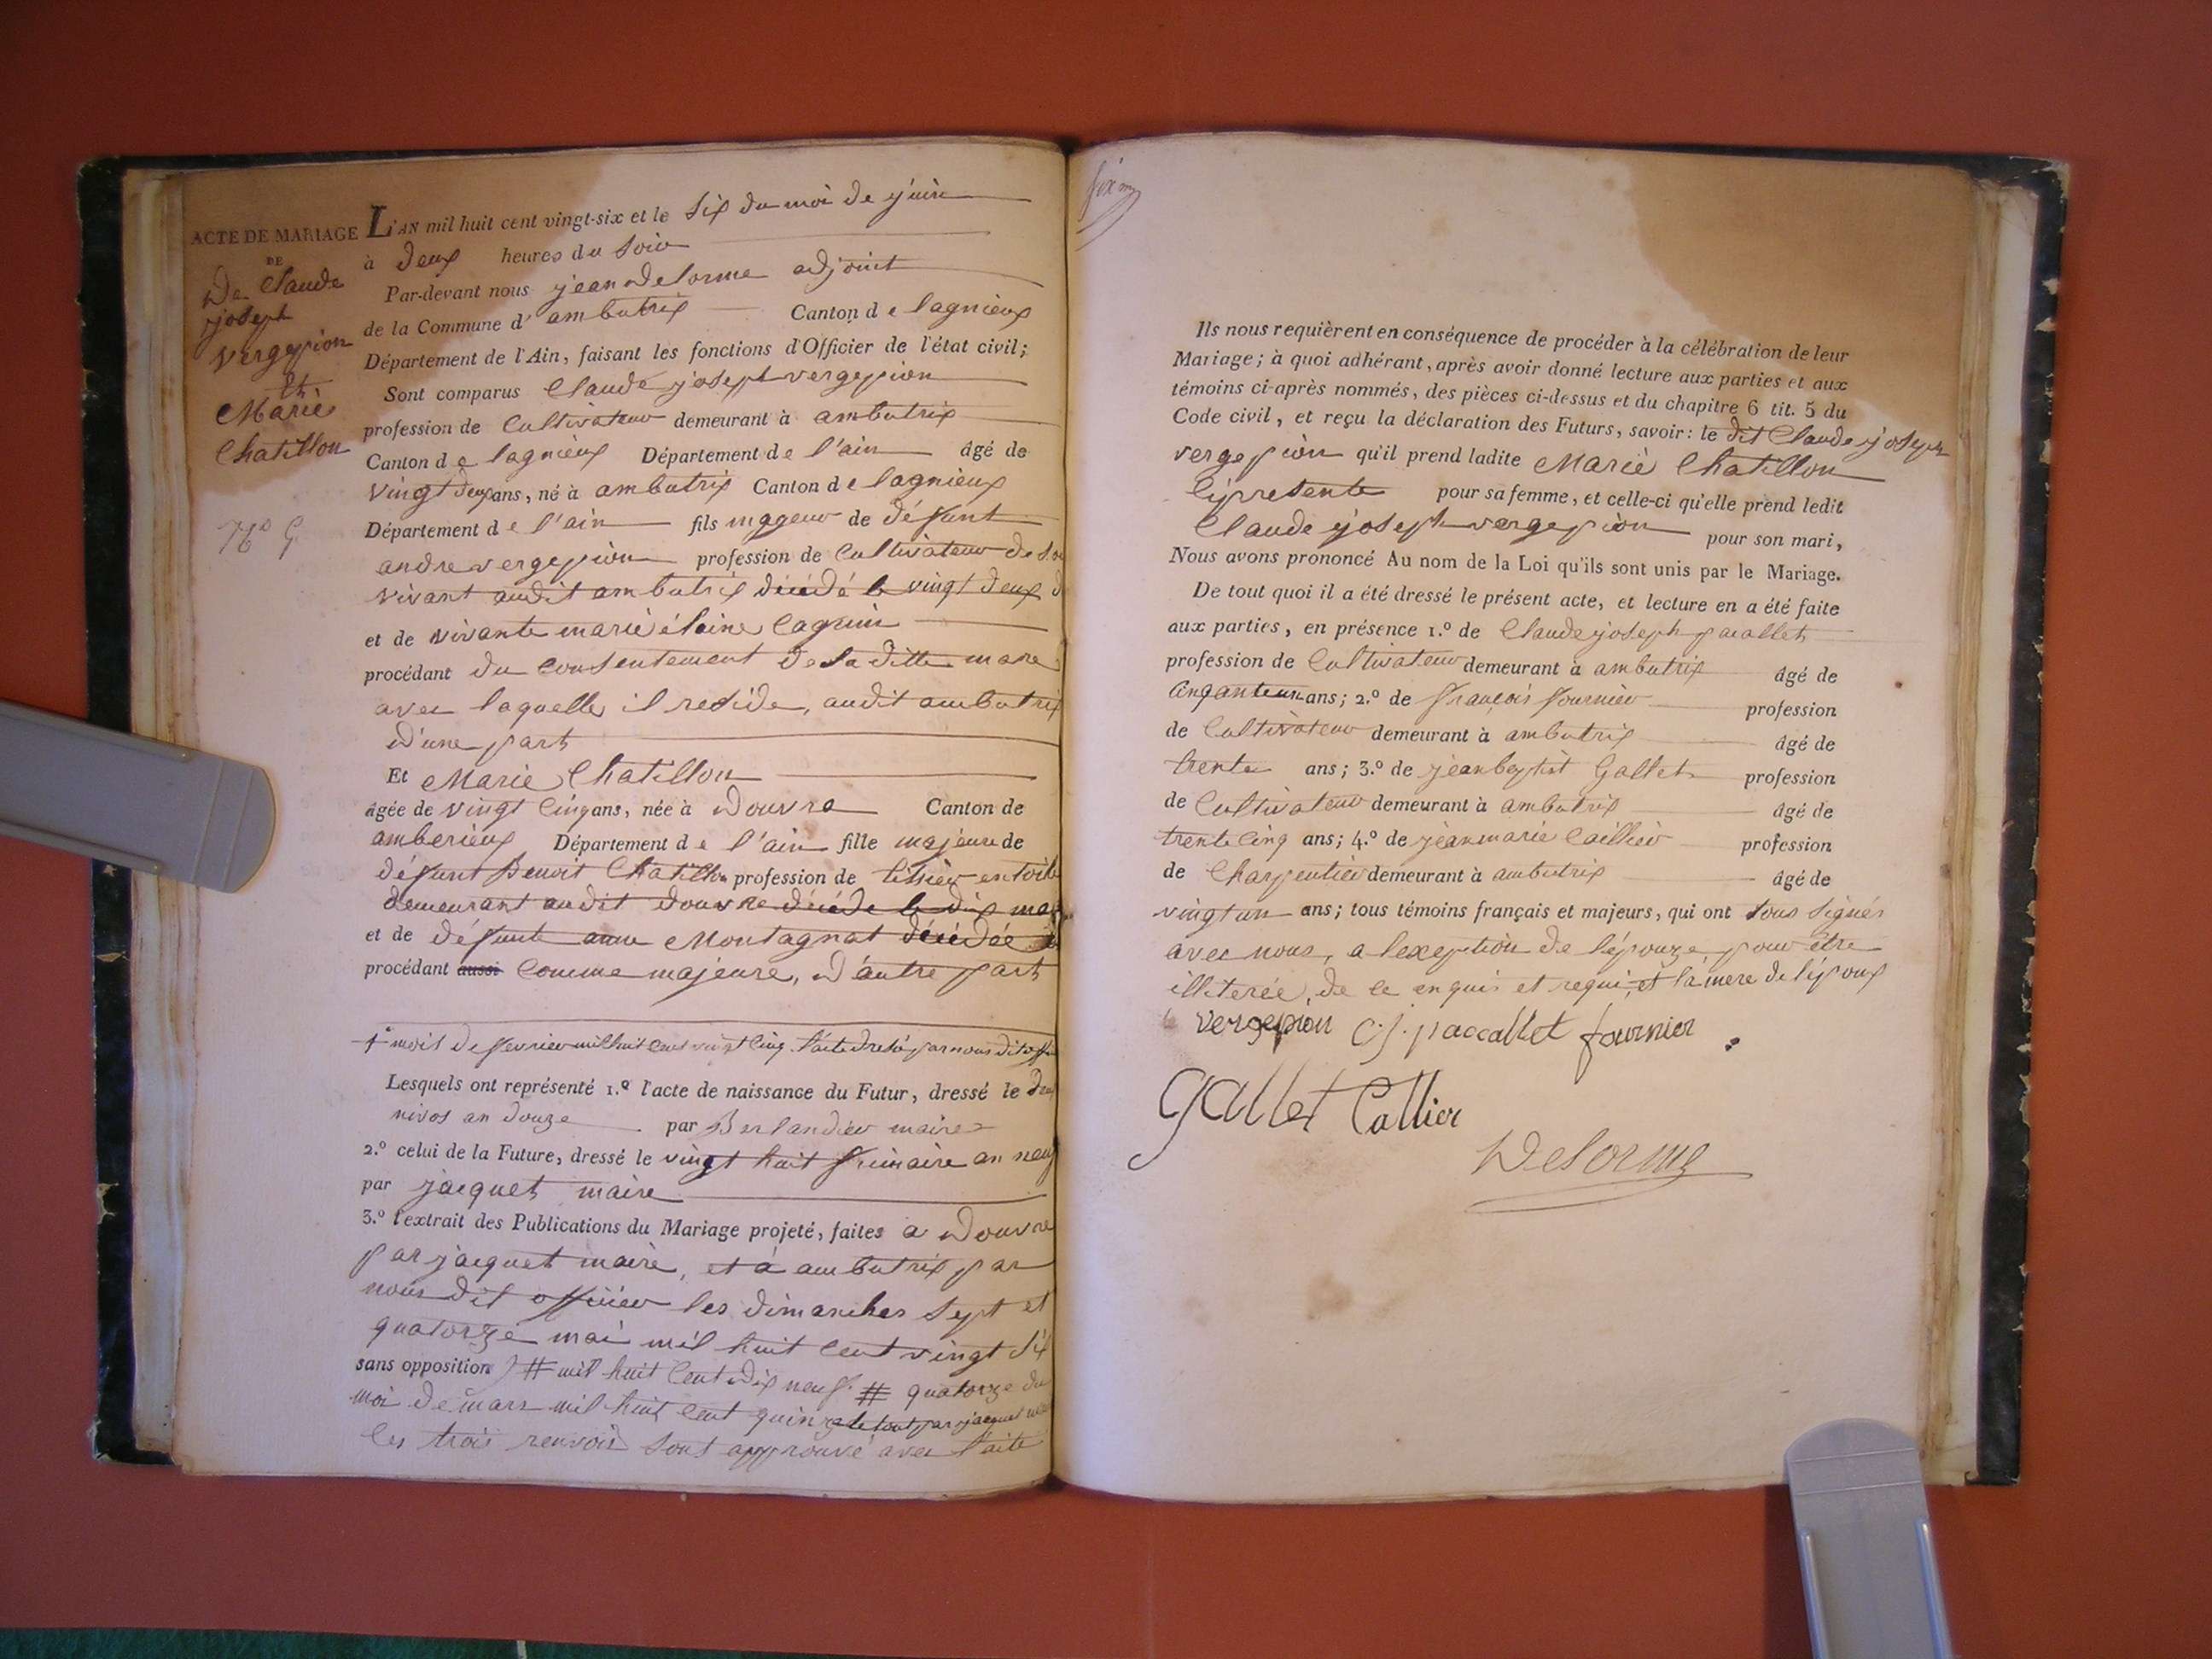 ACTE DE MARIAGE
DE
De Claude
joseph
vergepion
et
Marie
Chatillon
L'AN mil huit cent vingt-six et le Six du moi de juin
à deux heures du soir
Par-devant nous jean delorme adjoint
de la Commune d' ambutrix Canton de lagnieux
Département de l'Ain, faisant les fonctions d'Officier de l'état civil;
Sont comparus Claude joseph vergepion
profession de Cultivateur demeurant à ambutrix
Canton de lagnieux Département de l'ain âgé de
vingt deux ans, né à ambutrix Canton de lagnieux
Département de l'ain fils mageur de défunt
andre vergepion profession de Cultivateur de son
vivant audit ambutrix décédé le vingt deux
et de vivante marie élaine Cagnin
procédant du consentement de la ditte mere
avec laquelle il reside, audit ambutrix
d'une part
Et Marie Chatillon
âgée de vingt Cinq ans, née à douvre Canton de
amberieux Département de l'ain fille majeure de
défunt Benoit Chatillon profession de tissier en toile
demeurant audit douvre décédé le dix mai
et de défunte anne Montagnat décédée le
procédant aussi Comme majeure, d'autre part
mois de fevrier mil huit cent vingt Cinq l'acte dresé par nous dit offi
Lesquels ont représenté 1.º l'acte de naissance du Futur, dressé le
nivos an douze par Berlandier maire
2.º celui de la Future, dressé le vingt huit frimaire an neuf
par jacquet maire
3.º l'extrait des Publications du Mariage projeté, faites a douvre
par jacquet maire, et à ambutrix par
nous dit officier les dimanches sept et
quatorze mai mil huit cent vingt six
sans opposition # mil huit Cent dix neuf. # quatorze du
moi de mars mil huit cent quinze le tout par jacquet
les trois renvois sont approuvé avec l'aite
six
Ils nous requièrent en conséquence de procéder à la célébration de leur
Mariage; à quoi adhérant, après avoir donné lecture aux parties et aux
témoins ci-après nommés, des pièces ci-dessus et du chapitre 6 tit. 5 du
Code civil, et reçu la déclaration des Futurs, savoir: le dit Claude joseph
vergepion qu'il prend ladite Marie Chatillon
Cipresente pour sa femme, et celle-ci qu'elle prend ledit
Claude joseph vergepion pour son mari,
Nous avons prononcé Au nom de la Loi qu'ils sont unis par le Mariage.
De tout quoi il a été dressé le présent acte, et lecture en a été faite
aux parties, en présence 1.º de Claude joseph pacallet
profession de Cultivateur demeurant à ambutrix âgé de
Cinquante un ans; 2.º de françois fournier profession
de Cultivateur demeurant à ambutrix âgé de
trente ans; 3.º de jean baptist Gallet profession
de Cultivateur demeurant à ambutrix âgé de
trente Cinq ans; 4.º de jean marie Caillier profession
de Charpentier demeurant à ambutrix âgé de
vingt un ans; tous témoins français et majeurs, qui ont tous signés
avec nous, a lexeption de lépouze, pour être
illiterée, de ce enquis et requi, et la mere de l'époux
vergepion C.j. paccallet fournier
Gallet Callier
Delorme